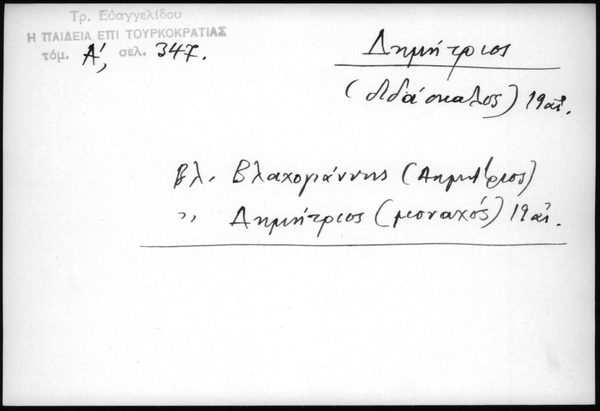 Τρ. Εὐαγγελίδου
Η ΠΑΙΔΕΙΑ ΕΠΙ ΤΟΥΡΚΟΚΡΑΤΙΑΣ
τόμ. Α', σελ. 347.
Δημήτριος
(διδάσκαλος) 19 αἰ.
βλ. Βλαχογιάννης (Δημήτριος)
" Δημήτριος (μοναχός) 19 αἰ.